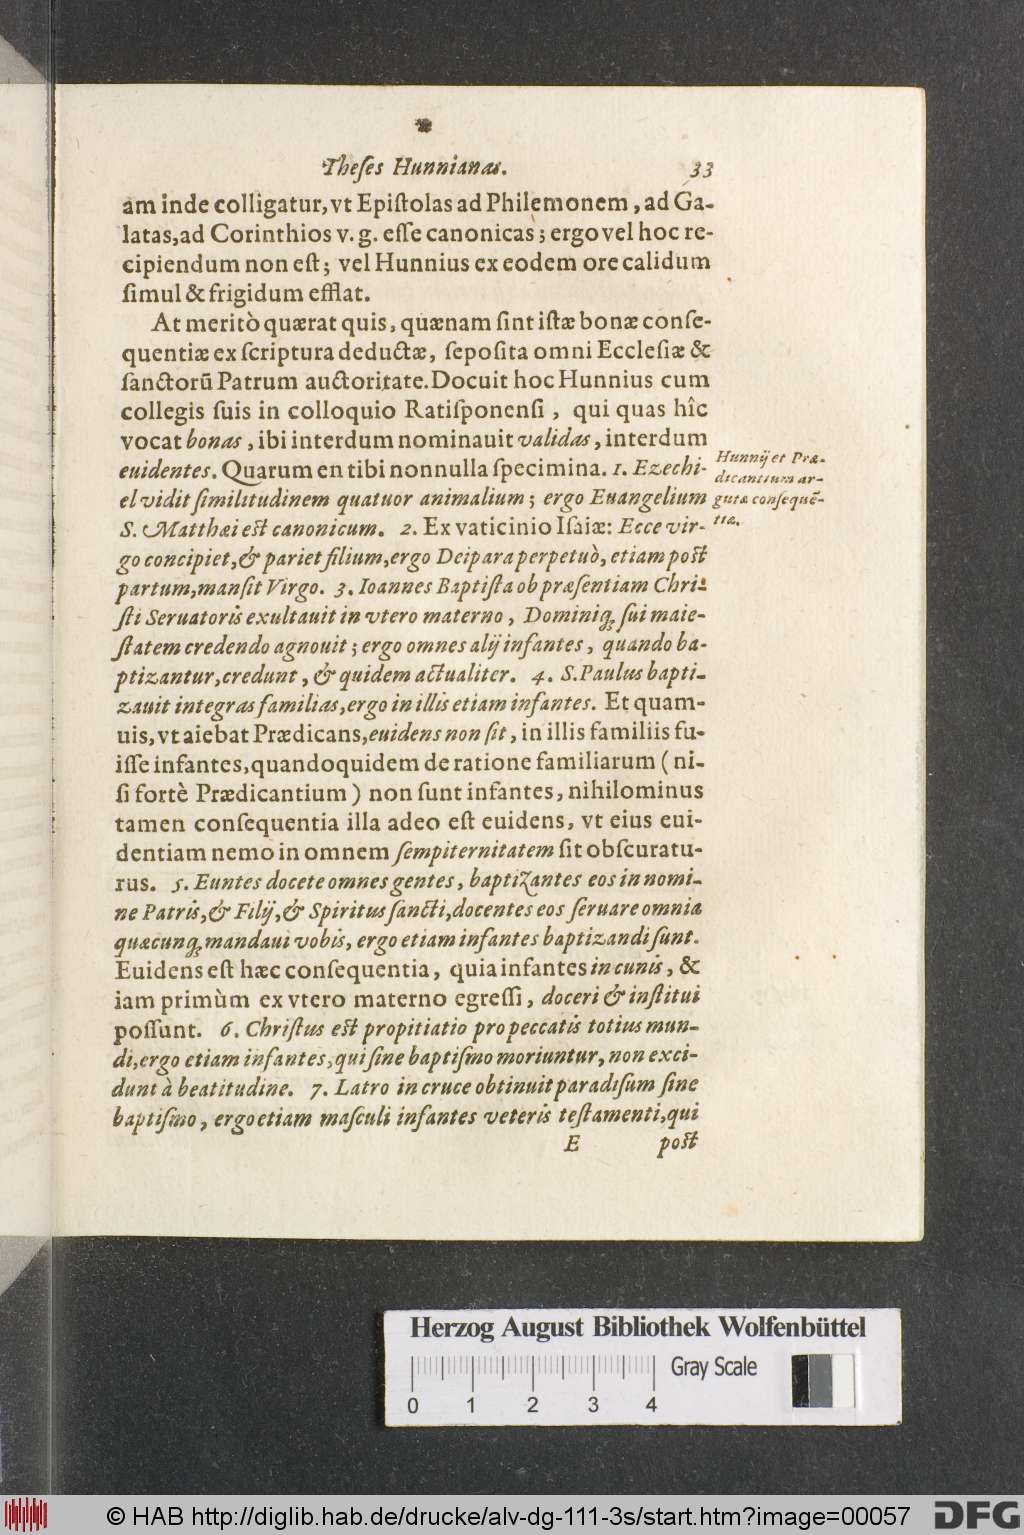 Theſes Hunnianas. 33
am inde colligatur, vt Epiſtolas ad Philemonem, ad Ga-
latas, ad Corinthios v. g. eſſe canonicas; ergo vel hoc re-
cipiendum non eſt; vel Hunnius ex eodem ore calidum
ſimul & frigidum efflat.
At meritò quærat quis, quænam ſint iſtæ bonæ conſe-
quentiæ ex ſcriptura deductæ, ſepoſita omni Eccleſiæ &
ſanctorū Patrum auctoritate. Docuit hoc Hunnius cum
collegis ſuis in colloquio Ratiſponenſi, qui quas hîc
vocat bonas, ibi interdum nominauit validas, interdum
euidentes. Quarum en tibi nonnulla ſpecimina. 1. Ezechi-
el vidit ſimilitudinem quatuor animalium; ergo Euangelium
S. Matthæi eſt canonicum. 2. Ex vaticinio Iſaiæ: Ecce vir-
go concipiet, & pariet filium, ergo Deipara perpetuò, etiam poſt
partum, manſit Virgo. 3. Ioannes Baptiſta ob præſentiam Chri-
ſti Seruatoris exultauit in vtero materno, Dominiq́; ſui maie-
ſtatem credendo agnouit; ergo omnes alij infantes, quando ba-
ptizantur, credunt, & quidem actualiter. 4. S. Paulus bapti-
zauit integras familias, ergo in illis etiam infantes. Et quam-
uis, vt aiebat Prædicans, euidens non ſit, in illis familiis fu-
iſſe infantes, quandoquidem de ratione familiarum (ni-
ſi fortè Prædicantium) non ſunt infantes, nihilominus
tamen conſequentia illa adeo eſt euidens, vt eius eui-
dentiam nemo in omnem ſempiternitatem ſit obſcuratu-
rus. 5. Euntes docete omnes gentes, baptizantes eos in nomi-
ne Patris, & Filij, & Spiritus ſancti, docentes eos ſeruare omnia
quæcunq́; mandaui vobis, ergo etiam infantes baptizandi ſunt.
Euidens eſt hæc conſequentia, quia infantes in cunis, &
iam primùm ex vtero materno egreſſi, doceri & inſtitui
poſſunt. 6. Chriſtus eſt propitiatio pro peccatis totius mun-
di, ergo etiam infantes, qui ſine baptiſmo moriuntur, non exci-
dunt à beatitudine. 7. Latro in cruce obtinuit paradiſum ſine
baptiſmo, ergo etiam maſculi infantes veteris teſtamenti, qui
E poſt
Hunnij et Præ-
dicantium ar-
gutæ conſequē-
tiæ.
Herzog August Bibliothek Wolfenbüttel
Gray Scale
0 1 2 3 4
© HAB http://diglib.hab.de/drucke/alv-dg-111-3s/start.htm?image=00057
DFG